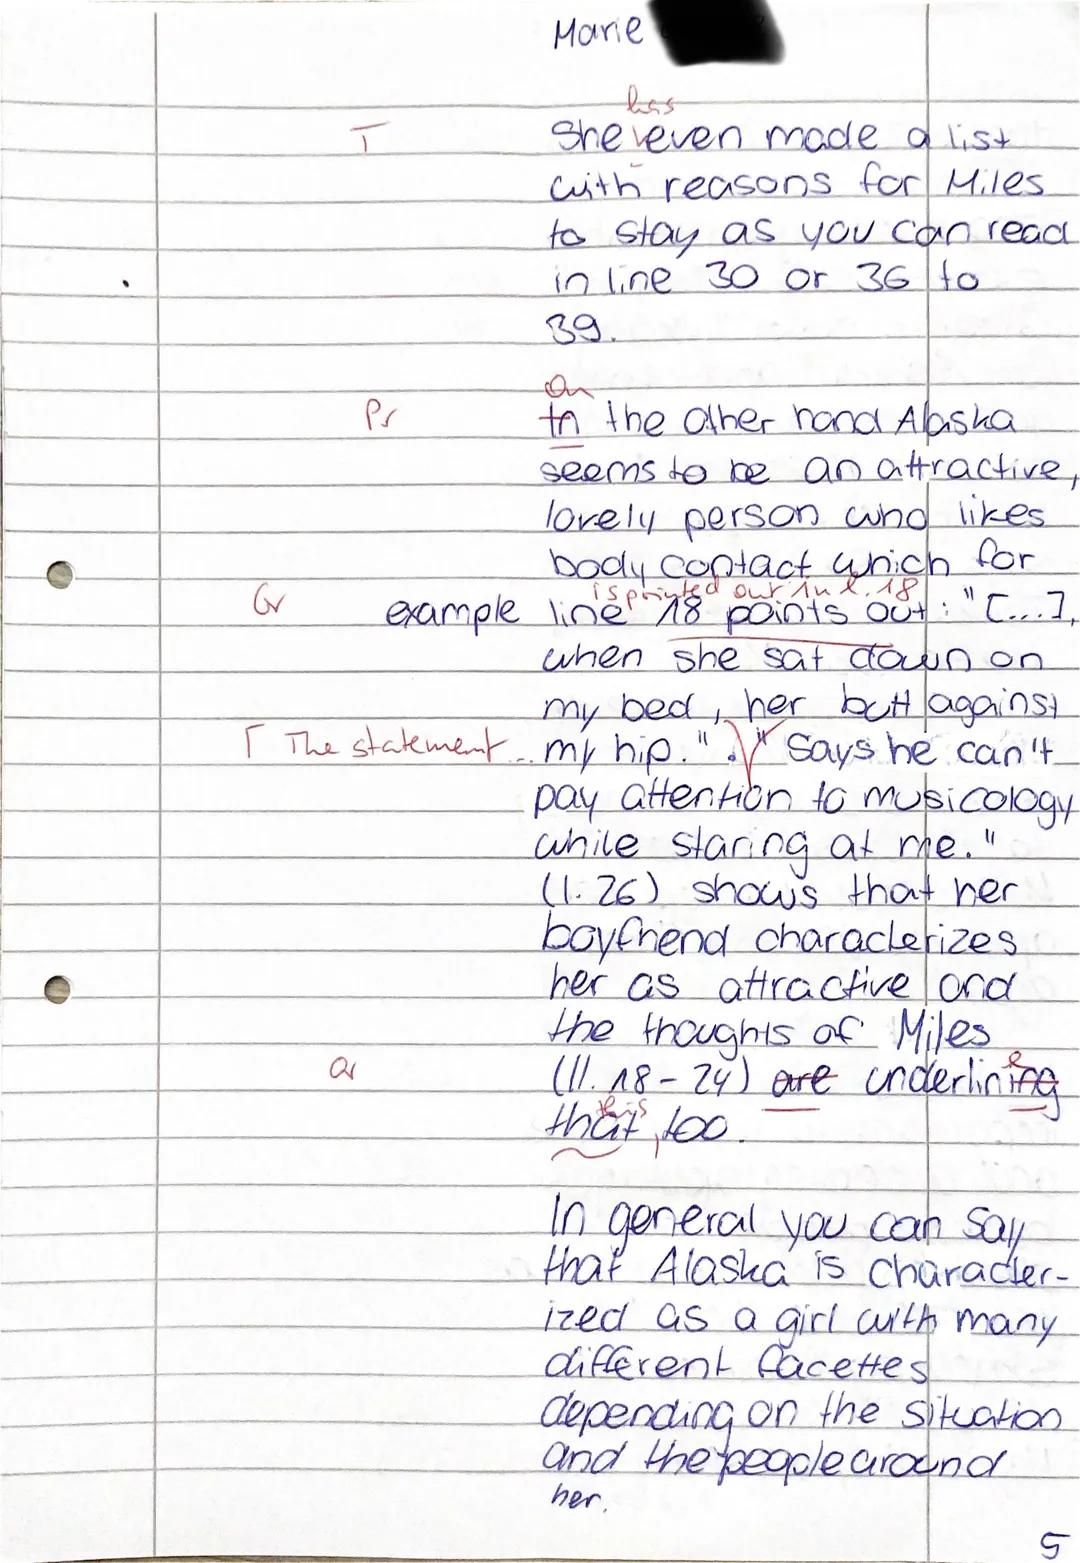 Marie
has
T She even made a list
with reasons for Miles
to stay as you can read
in line 30 or 36 to
39.
On
Pr In the other hand Alaska
seems to be an attractive,
lovely person who likes
body contact which for
is printed out in l. 18
Gr example line 18 points out: "[...],
when she sat down on
my bed, her butt against
Γ The statement... my hip.". " Says he can't
pay attention to musicology
while staring at me."
(l. 26) shows that her
boyfriend characterizes
her as attractive and
the thoughts of Miles
e
Gr (ll. 18-24) are underlining
this
that, too.
In general you can say
that Alaska is character-
ized as a girl with many
different facettes
depending on the situation
and the people around
her.
5